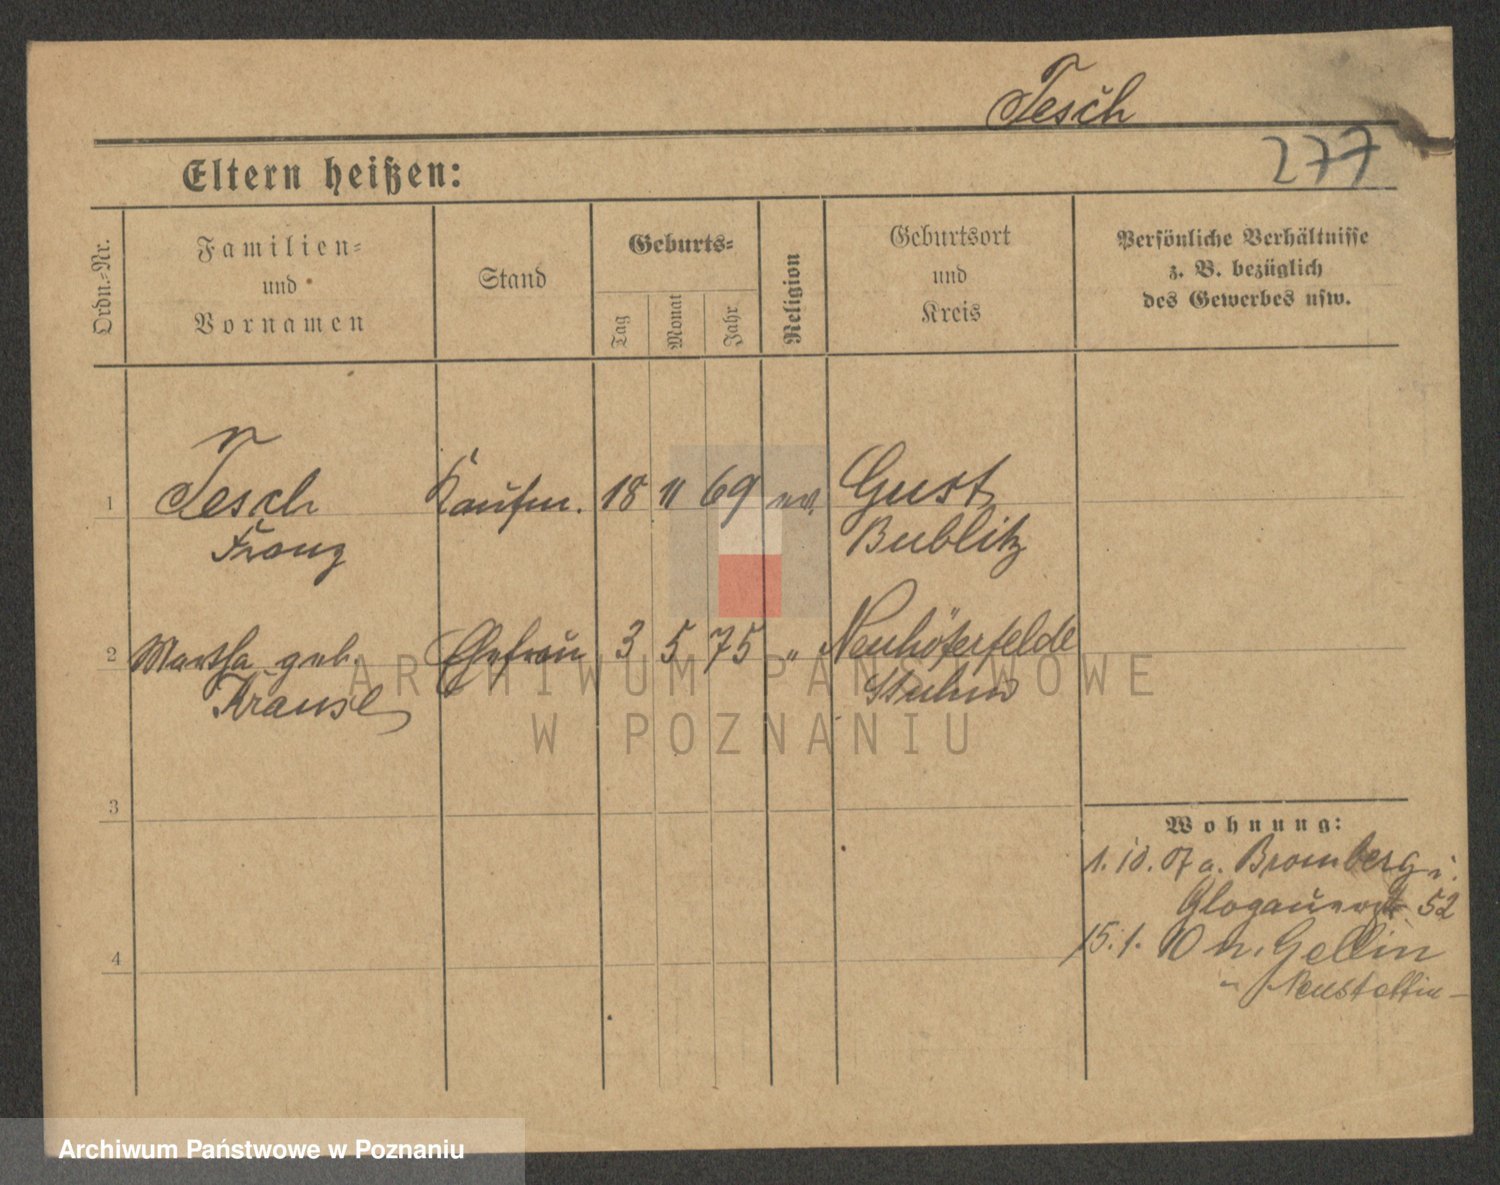 Tesch
277
Eltern heißen:
Ordn.-Nr.
Familien-
und
Vornamen
Stand
Geburts-
Tag
Monat
Jahr
Religion
Geburtsort
und
Kreis
Persönliche Verhältnisse
z. B. bezüglich
des Gewerbes usw.
1
Tesch
Franz
Kaufm.
18
11
69
ev.
Gust
Bublitz
2
Martha geb.
Krause
Ehefrau
3
5
75
"
Neuhöferfelde
Stuhm
ARCHIWUM PAŃSTWOWE
W POZNANIU
3
Wohnung:
1. 10. 07 a. Bromberg i.
Glogauerstr 52
15. 1. 10 n. Gellin
Neustettin
4
Archiwum Państwowe w Poznaniu